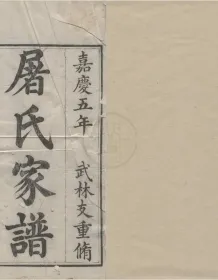 嘉慶五年　武林支重脩
屠氏家譜